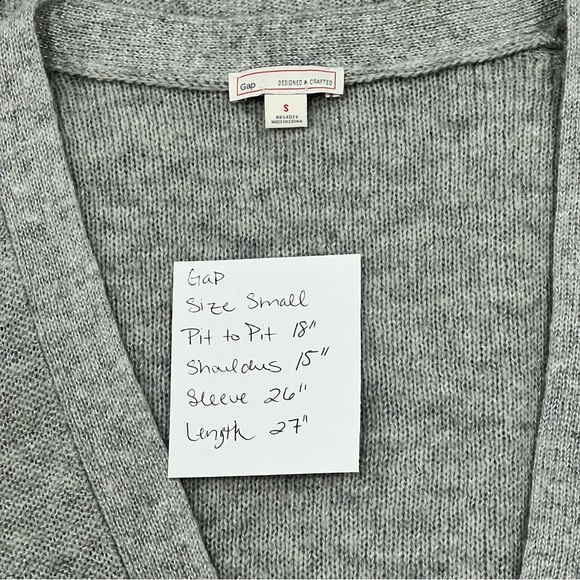 Gap DESIGNED & CRAFTED
S
RN54023
MADE IN CHINA
Gap
Size Small
Pit to Pit 18"
Shoulders 15"
Sleeve 26"
Length 27"